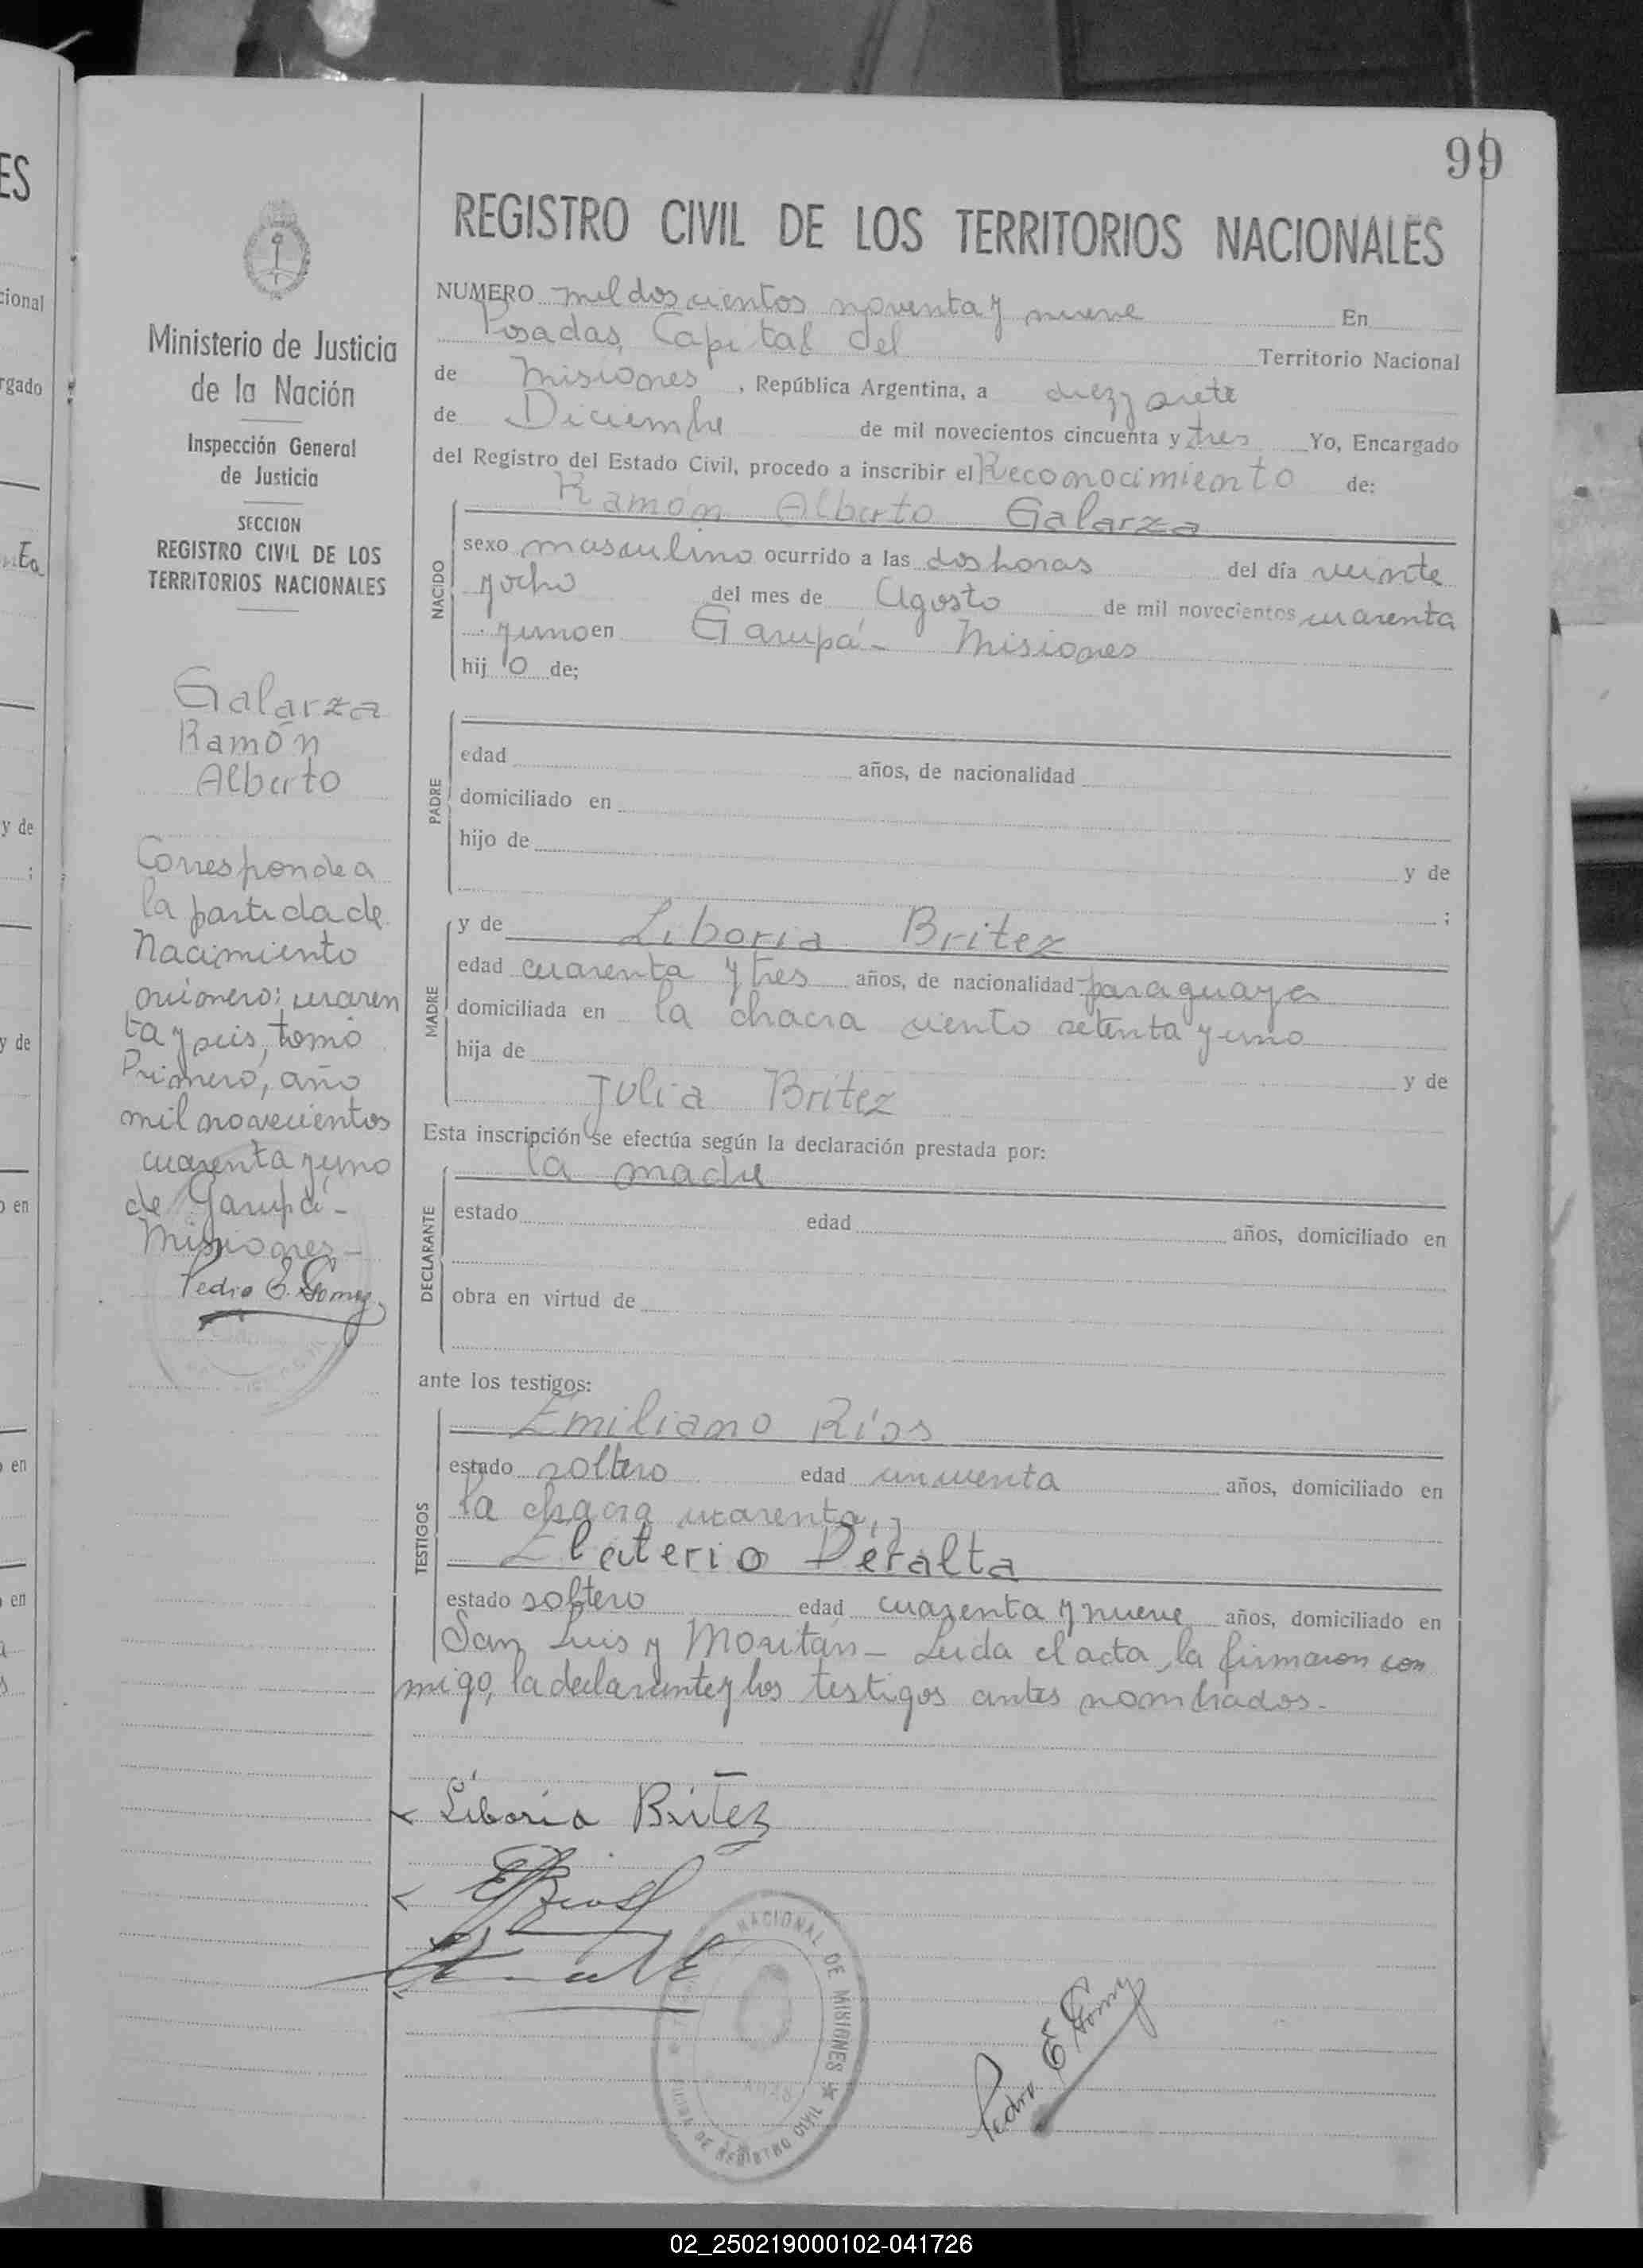 99
REGISTRO CIVIL DE LOS TERRITORIOS NACIONALES
Ministerio de Justicia
de la Nación
Inspección General
de Justicia
SECCION
REGISTRO CIVIL DE LOS
TERRITORIOS NACIONALES
Galarza
Ramón
Alberto
Corresponde a
la partida de
Nacimiento
número: cuaren
ta y seis, tomo
Primero, año
mil novecientos
cuarenta y uno
de Garupá-
Misiones-
Pedro E. Gomez
NUMERO mil doscientos noventa y nueve En
Posadas, Capital del Territorio Nacional
de Misiones, República Argentina, a diez y siete
de Diciembre de mil novecientos cincuenta y tres Yo, Encargado
del Registro del Estado Civil, procedo a inscribir el Reconocimiento de:
Ramón Alberto Galarza
NACIDO
sexo masculino ocurrido a las dos horas del día veinte
y ocho del mes de Agosto de mil novecientos cuarenta
y uno en Garupá- Misiones
hij o de;
PADRE
edad años, de nacionalidad
domiciliado en
hijo de y de
;
MADRE
y de Liboria Britez
edad cuarenta y tres años, de nacionalidad paraguaya
domiciliada en la chacra ciento setenta y uno
hija de y de
Julia Britez
Esta inscripción se efectúa según la declaración prestada por:
la madre
DECLARANTE
estado edad años, domiciliado en
obra en virtud de
ante los testigos:
TESTIGOS
Emiliano Ríos
estado soltero edad cincuenta años, domiciliado en
la chacra cuarenta, y
Eleuterio Peralta
estado soltero edad cuarenta y nueve años, domiciliado en
San Luis y Moritán- Leida el acta, la firmaron con
migo, la declarante y los testigos antes nombrados-
Liboria Britez
NACIONAL DE MISIONES
DE REGISTRO CIVIL
Pedro E Gomez
02_250219000102-041726